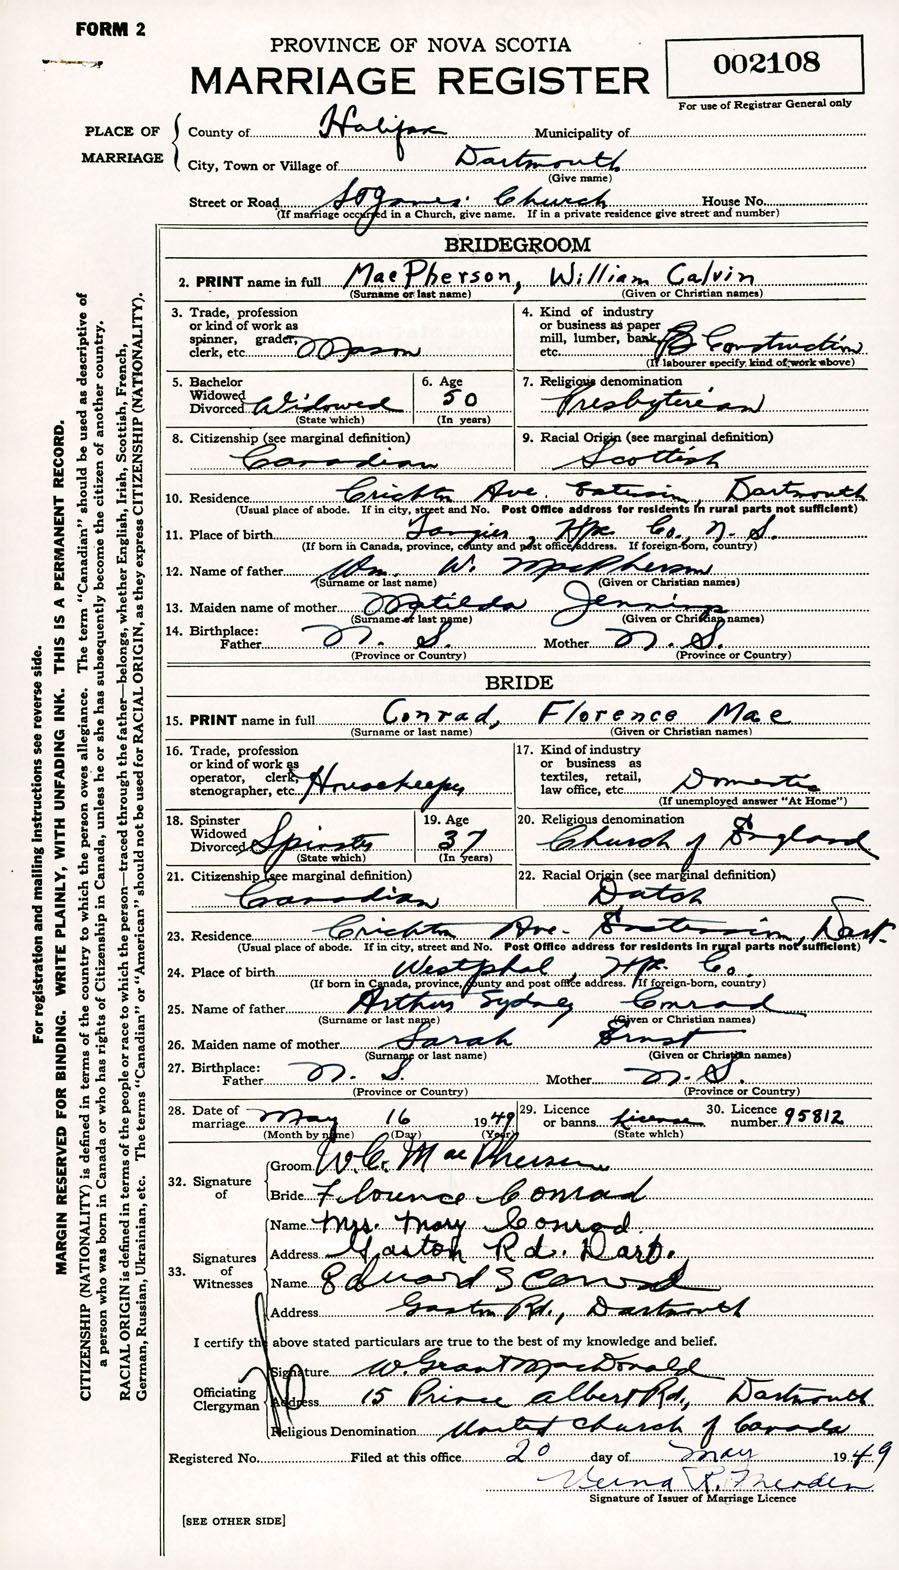 FORM 2
PROVINCE OF NOVA SCOTIA
MARRIAGE REGISTER
002108
For use of Registrar General only
PLACE OF MARRIAGE
County of Halifax Municipality of
City, Town or Village of Dartmouth
(Give name)
Street or Road St James' Church House No.
(If marriage occurred in a Church, give name. If in a private residence give street and number)
BRIDEGROOM
2. PRINT name in full MacPherson, William Calvin
(Surname or last name) (Given or Christian names)
3. Trade, profession or kind of work as spinner, grader, clerk, etc. Mason
4. Kind of industry or business as paper mill, lumber, bank, etc. Construction
(If labourer specify kind of work above)
5. Bachelor Widowed Divorced Widowed
(State which)
6. Age 50
(In years)
7. Religious denomination Presbyterian
8. Citizenship (see marginal definition) Canadian
9. Racial Origin (see marginal definition) Scottish
10. Residence Crichton Ave. Extension, Dartmouth
(Usual place of abode. If in city, street and No. Post Office address for residents in rural parts not sufficient)
11. Place of birth Tangier, Hfx. Co., N. S.
(If born in Canada, province, county and post office address. If foreign-born, country)
12. Name of father Wm. W. MacPherson
(Surname or last name) (Given or Christian names)
13. Maiden name of mother Matilda Jennings
(Surname or last name) (Given or Christian names)
14. Birthplace: Father N. S. Mother N. S.
(Province or Country) (Province or Country)
BRIDE
15. PRINT name in full Conrad, Florence Mae
(Surname or last name) (Given or Christian names)
16. Trade, profession or kind of work as operator, clerk, stenographer, etc. Housekeeper
17. Kind of industry or business as textiles, retail, law office, etc. Domestic
(If unemployed answer "At Home")
18. Spinster Widowed Divorced Spinster
(State which)
19. Age 37
(In years)
20. Religious denomination Church of England
21. Citizenship (see marginal definition) Canadian
22. Racial Origin (see marginal definition) Dutch
23. Residence Crichton Ave. Extension, Dart.
(Usual place of abode. If in city, street and No. Post Office address for residents in rural parts not sufficient)
24. Place of birth Westphal, Hfx. Co.
(If born in Canada, province, county and post office address. If foreign-born, country)
25. Name of father Arthur Sydney Conrad
(Surname or last name) (Given or Christian names)
26. Maiden name of mother Sarah Ernst
(Surname or last name) (Given or Christian names)
27. Birthplace: Father N. S. Mother N. S.
(Province or Country) (Province or Country)
28. Date of marriage May 16 1949
(Month by name) (Day) (Year)
29. Licence or banns License
(State which)
30. Licence number 95812
32. Signature of
Groom W. C. MacPherson
Bride Florence Conrad
33. Signatures of Witnesses
Name Mrs. Mary Conrad
Address Gaston Rd. Dart.
Name Edward S Conrad
Address Gaston Rd., Dartmouth
I certify the above stated particulars are true to the best of my knowledge and belief.
Officiating Clergyman
Signature W. Grant MacDonald
Address 15 Prince Albert Rd., Dartmouth
Religious Denomination United Church of Canada
Registered No. Filed at this office 20 day of May 1949
Verna R.
Signature of Issuer of Marriage Licence
[SEE OTHER SIDE]
For registration and mailing instructions see reverse side.
MARGIN RESERVED FOR BINDING. WRITE PLAINLY, WITH UNFADING INK. THIS IS A PERMANENT RECORD.
CITIZENSHIP (NATIONALITY) is defined in terms of the country to which the person owes allegiance. The term "Canadian" should be used as descriptive of
a person who was born in Canada or who has rights of Citizenship in Canada, unless he or she has subsequently become the citizen of another country.
RACIAL ORIGIN is defined in terms of the people or race to which the person—traced through the father—belongs, whether English, Irish, Scottish, French,
German, Russian, Ukrainian, etc. The terms "Canadian" or "American" should not be used for RACIAL ORIGIN, as they express CITIZENSHIP (NATIONALITY).